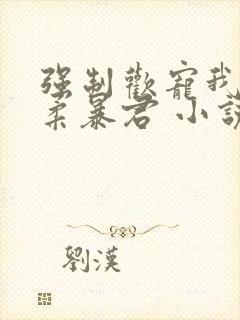 强制歡寵我
柔暴君 小說
劉漢